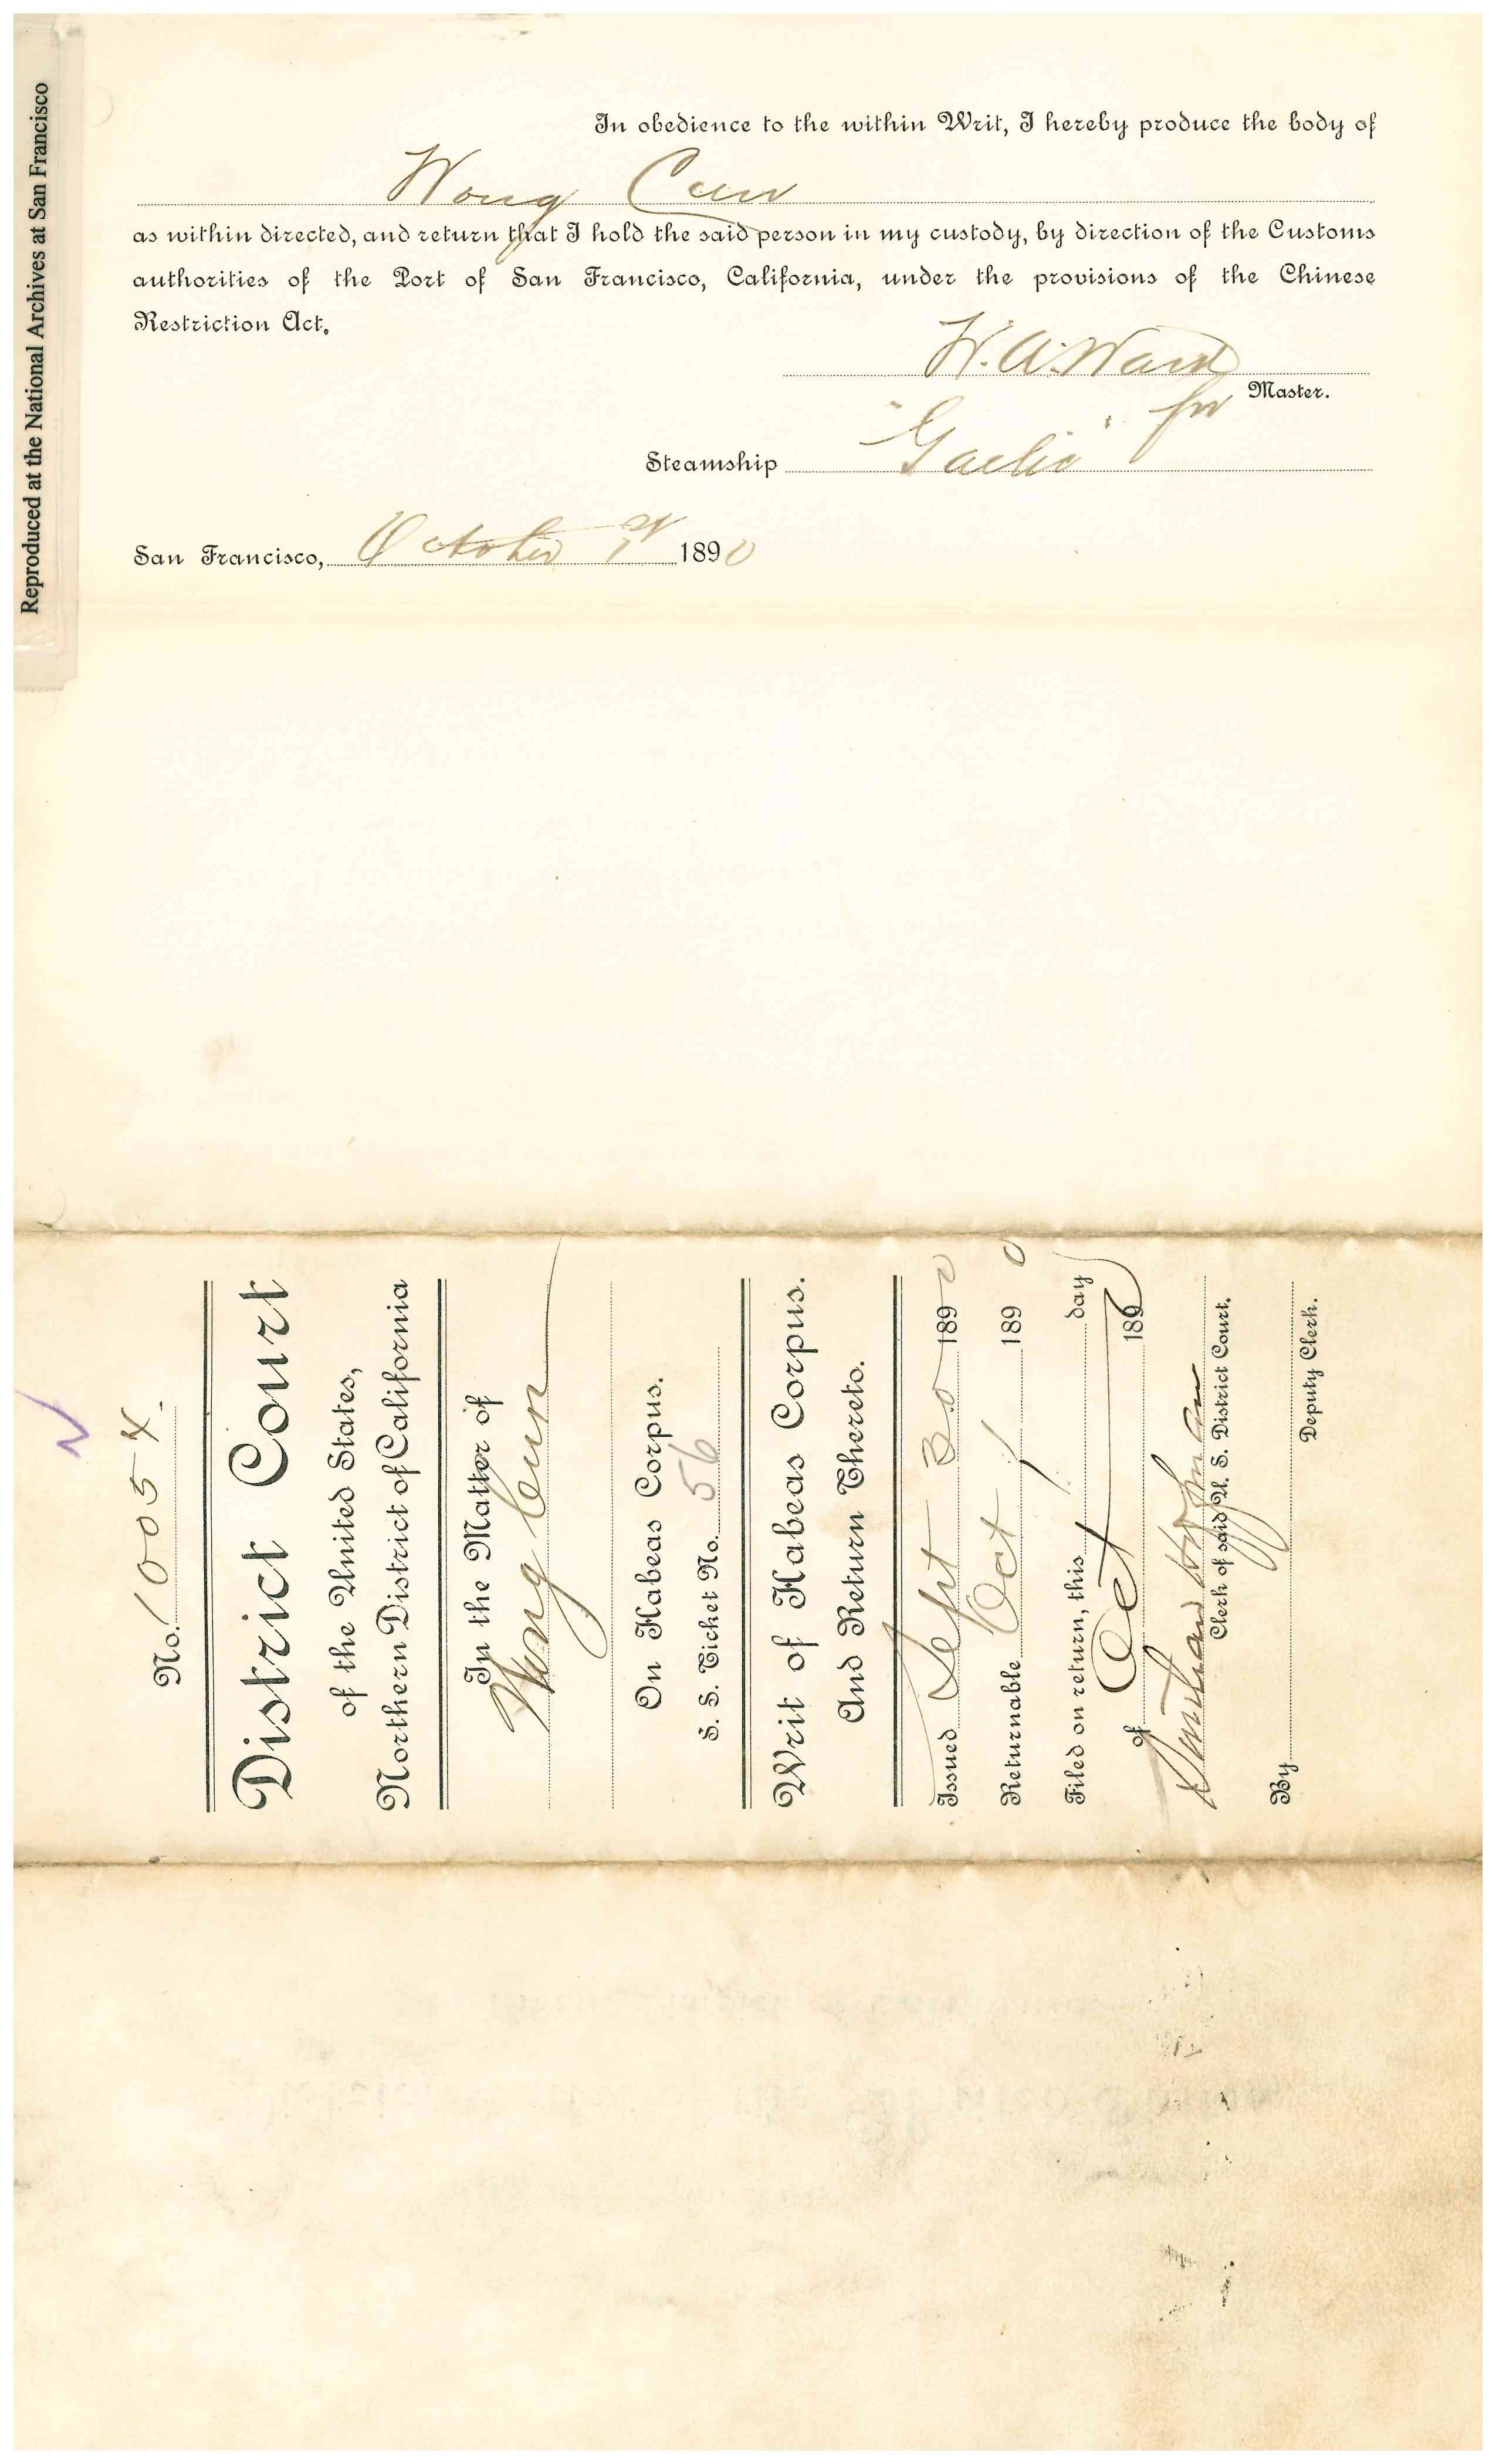 Reproduced at the National Archives at San Francisco
In obedience to the within Writ, I hereby produce the body of
Wong Cun
as within directed, and return that I hold the said person in my custody, by direction of the Customs
authorities of the Port of San Francisco, California, under the provisions of the Chinese
Restriction Act.
W. A. Ward
Master.
for
Steamship "Gaelic"
San Francisco, October 1st 1890
No. 10054.
District Court
of the United States,
Northern District of California
In the Matter of
Wong Cun
On Habeas Corpus.
S. S. Ticket No. 56
Writ of Habeas Corpus.
And Return Thereto.
Issued Sept 30 1890
Returnable Oct 1 1890
Filed on return, this 1 day
of Oct 1890
Southard Hoffman
Clerk of said U. S. District Court.
By
Deputy Clerk.